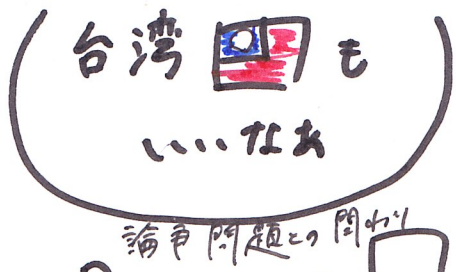 台湾も
いいなあ
論争問題との関わり